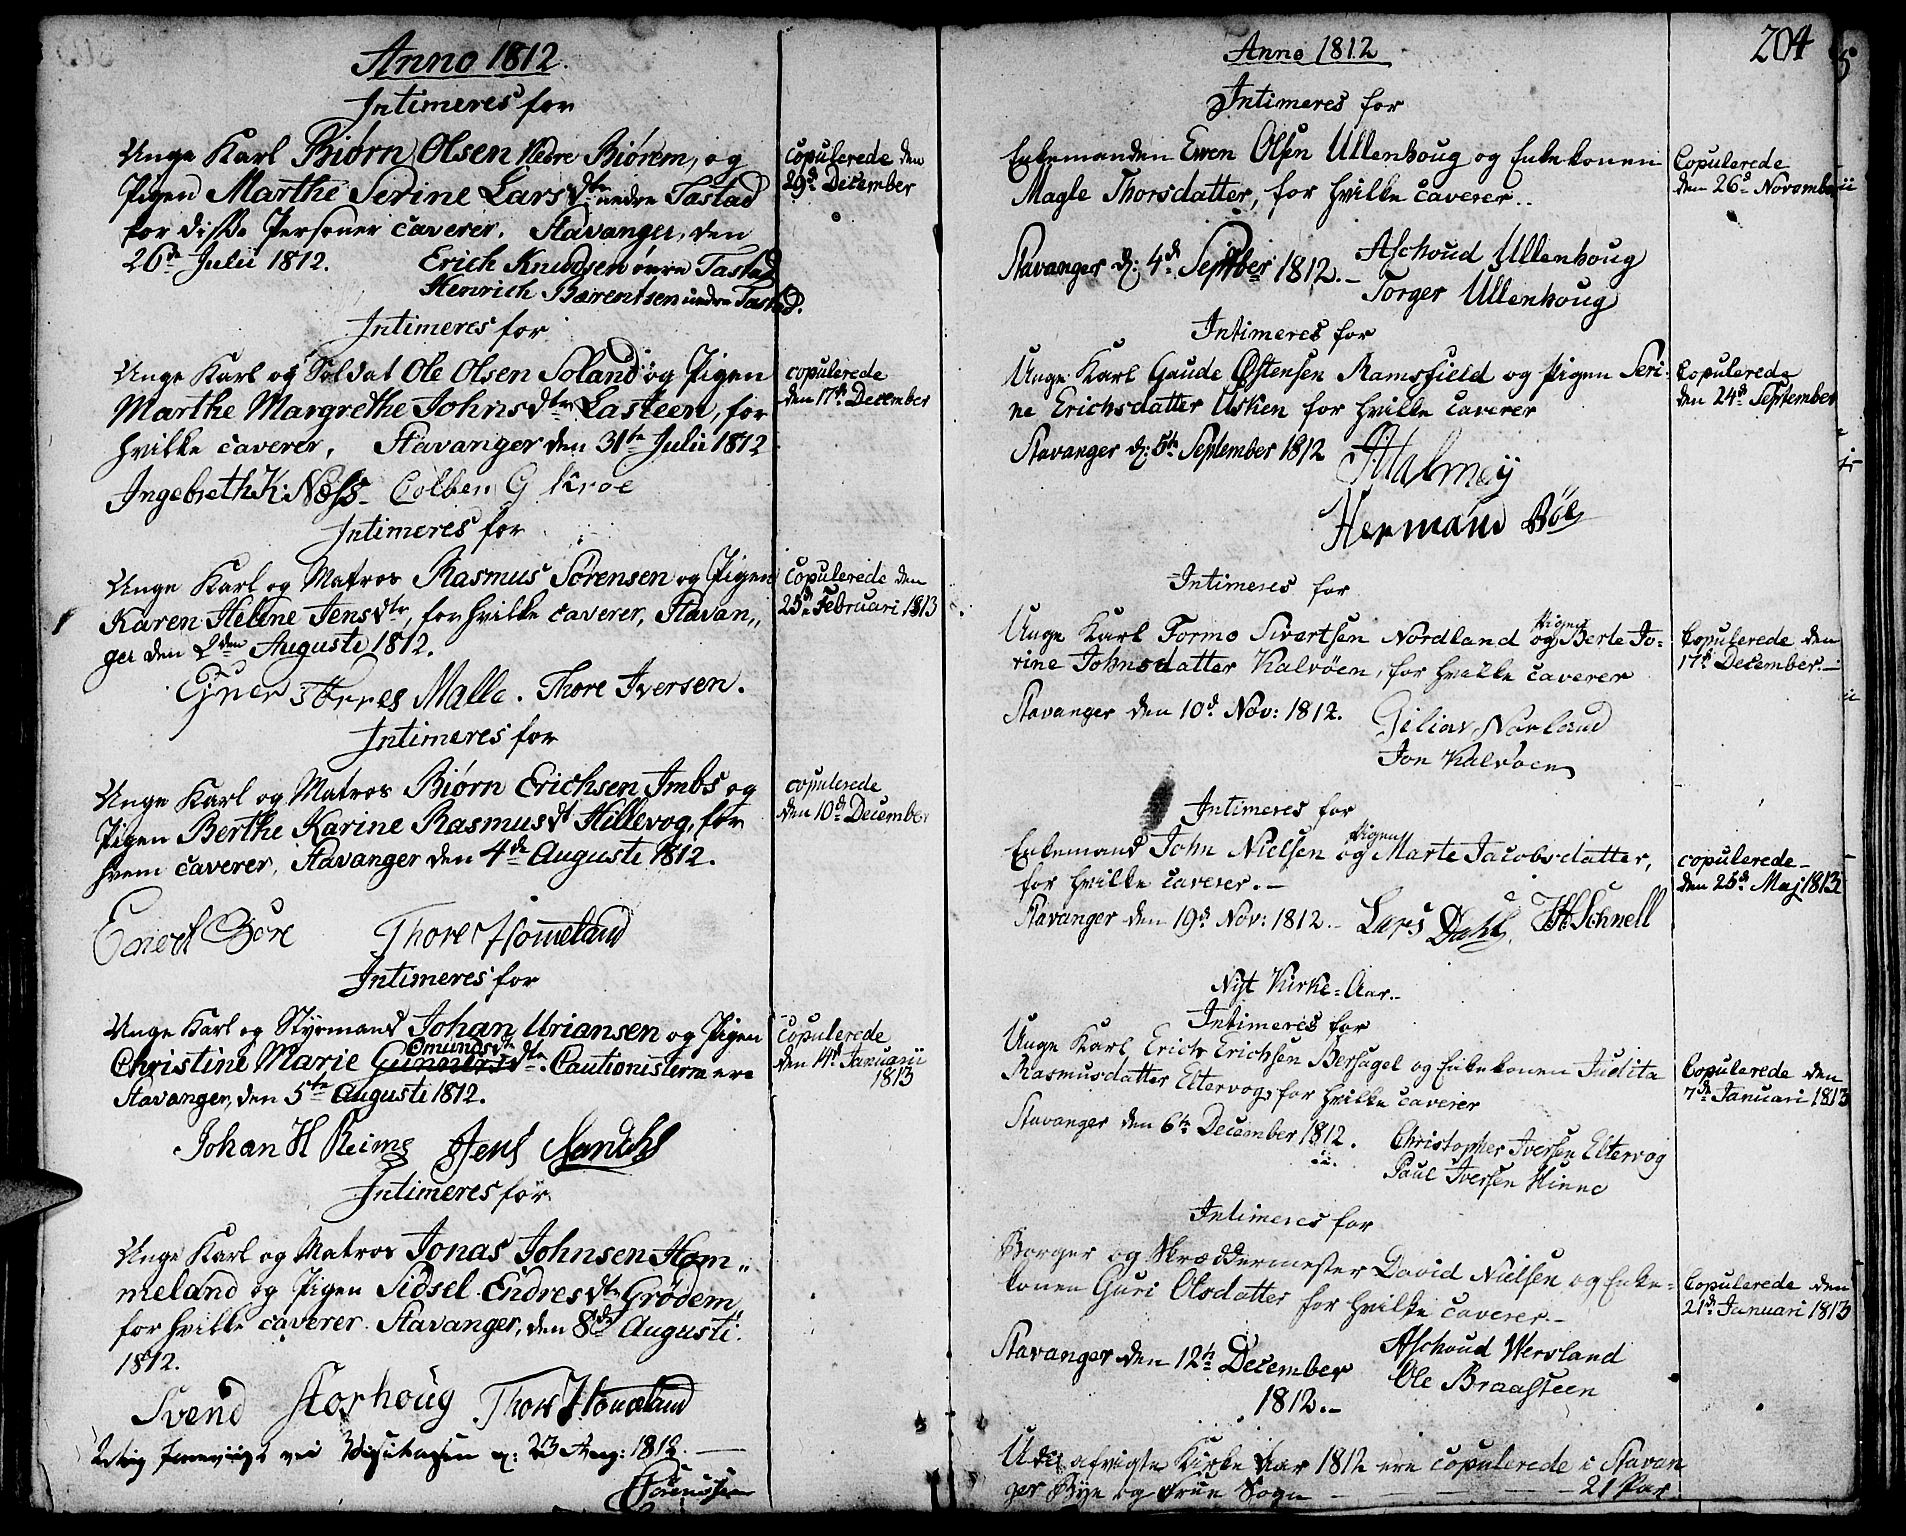 Anno 1812.
Intimeres for
Unge Karl Biørn Olsen Nedre Biørem, og
Pigen Marthe Serine Larsdtr nedre Tastad
for disse Personer caverer. Stavanger, den
26de Julii 1812. Erich Knudsen øvre Tastad
Henrich Bærentsen nedre Tastad.
copulerede den
29d December
Intimeres for
Unge Karl og Soldat Ole Olsen Soland og Pigen
Marthe Margrethe Johnsdtr Lasteen, for
hvilke caverer, Stavanger den 31te Julii 1812
Ingebreth K: Næss. Colben G Kroe
copulerede
den 17de December
Intimeres for
Unge Karl og Matros Rasmus Sørensen og Pigen
Karen Helene Jensdtr, for hvilke caverer, Stavan,,
ger den 2den Augusti 1812.
Torres Malle. Thore Iversen.
Copulerede den
25d Februari 1813
Intimeres for
Unge Karl og Matros Biørn Erichsen Imbs og
Pigen Berthe Karine Rasmusdt Hillevog, for
hvem caverer, Stavanger den 4de Augusti 1812.
Thore Homeland
copulerede
den 10d December
Intimeres for
Unge Karl og Styrmand Johan Uriansen og Pigen
Omundsdtr
Christine Marie Gunnarsdtr. Cautionisterne ere
Stavanger, den 5te Augusti 1812.
Johan H Reime Jens
Copulerede
den 14d Januarii
1813
Intimeres for
Unge Karl og Matros Jonas Johnsen Hom,,
meland og Pigen Sidsel Endresdtr Grødem,
for hvilke caverer. Stavanger, den 8de Augusti
1812.
Svend Storhoug Thore Homeland
d: 23 Aug: 1812.
204
Anno 1812
Intimeres for
Enkemanden Ewen Olsen Ullenhoug og Enkekonen
Magle Thorsdatter, for hvilke caverer..
Stavanger d: 4d Septber 1812.- Aschoud Ullenhoug
Torger Ullenhoug
Copulerede
den 26d Novembe
Intimeres for
Unge Karl Gaude Østensen Ramsfield og Pigen Seri:
ne Erichsdatter Asken for hvilke caverer
Stavanger d: 5te September 1812 Halmøy
Hermand Böe
Copulerede
den 24d September
Intimeres for
Pigen
Unge Karl Tormo Sivertsen Nordland og Berte Jo-
rine Johnsdatter Kalvøen, for hvilke caverer
Stavanger den 10d Nov: 1812. Giliar Norland
Jon Kalvøen
Copulerede den
17d December.-
Intimeres for
Pigen
Enkemand John Nielsen og Marte Jacobsdatter,
for hvilke caverer.-
Stavanger den 19d Nov: 1812.- Lars Dahl, H. Schnell
copulerede-
den 25d Maj 1813
Nyt Kirke-Aar.-
Intimeres for
Unge Karl Erich Erichsen Bersagel og Enkekonen Judita
Rasmusdatter Eltervog, for hvilke caverer
Stavanger den 6te December 1812. Christopher Iversen Eltervog
Paul Iversen Hinne
Copulerede den
7de Januari 1813
Intimeres for
Borger og Skræddermester David Nielsen og Enke-
konen Guri Olsdatter for hvilke caverer.-
Stavanger den 12te December Aschoud Wersland
1812.- Ole Braasteen
Copulerede den
21d Januari 1813
Udi afvigte Kirke Aar 1812 ere copulerede i Stavan
ger Bye og Frue Sogn - - - 21 Par.